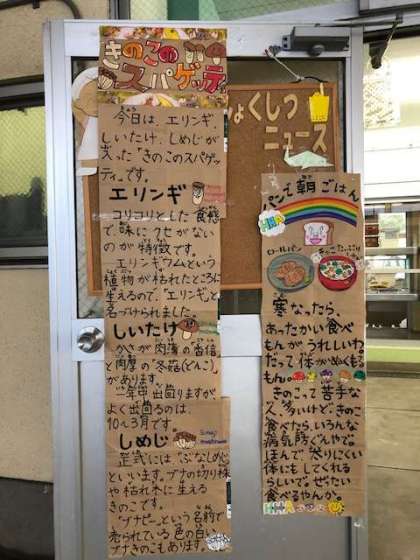 きのこの
スパゲッティ
今日は、エリンギ、
しいたけ、しめじが
入った「きのこのスパゲッ
ティ」です。
エリンギ
コリコリとした食感
で味にクセがない
のが特徴です。
エリンギウムという
植物が枯れたところに
生えるので、「エリンギ」と
名づけられました。
しいたけ
かさが肉薄の「香信」
と肉厚の「冬菇(どんこ)」
があります。
一年中出回りますが
よく出回るのは、
10〜3月です。
しめじ
正式には「ぶなしめじ」
といいます。ブナの切り株
や枯れ木に生える
きのこです。
「ブナピー」という名前で
売られている色の白い
ブナきのこもあります。
ょくしつ
ニュース
パンで朝ごはん
ロールパン
きのこたっぷり
寒なったら、
あったかい食べ
もんがうれしいわ。
だって体がぬくもる
もん。
きのこって苦手な
人多いけど、きのこ
食べたら、いろんな
病気防ぐんやで。
ほんで太りにくい
体にもしてくれる
らしいで。ぜったい
食べるやんか。